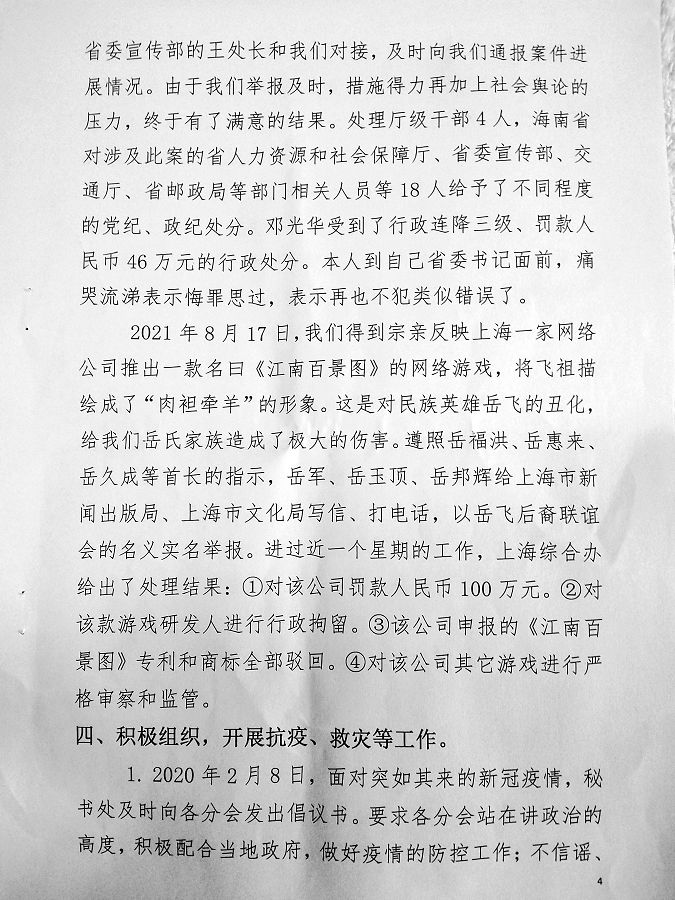 省委宣传部的王处长和我们对接，及时向我们通报案件进
展情况。由于我们举报及时，措施得力再加上社会舆论的
压力，终于有了满意的结果。处理厅级干部4人，海南省
对涉及此案的省人力资源和社会保障厅、省委宣传部、交
通厅、省邮政局等部门相关人员等18人给予了不同程度
的党纪、政纪处分。邓光华受到了行政连降三级、罚款人
民币46万元的行政处分。本人到自己省委书记面前，痛
哭流涕表示悔罪思过，表示再也不犯类似错误了。
2021年8月17日，我们得到宗亲反映上海一家网络
公司推出一款名曰《江南百景图》的网络游戏，将飞祖描
绘成了“肉袒牵羊”的形象。这是对民族英雄岳飞的丑化，
给我们岳氏家族造成了极大的伤害。遵照岳福洪、岳惠来、
岳久成等首长的指示，岳军、岳玉顶、岳邦辉给上海市新
闻出版局、上海市文化局写信、打电话，以岳飞后裔联谊
会的名义实名举报。进过近一个星期的工作，上海综合办
给出了处理结果：①对该公司罚款人民币100万元。②对
该款游戏研发人进行行政拘留。③该公司申报的《江南百
景图》专利和商标全部驳回。④对该公司其它游戏进行严
格审察和监管。
四、积极组织，开展抗疫、救灾等工作。
1. 2020年2月8日，面对突如其来的新冠疫情，秘
书处及时向各分会发出倡议书。要求各分会站在讲政治的
高度，积极配合当地政府，做好疫情的防控工作；不信谣、
4